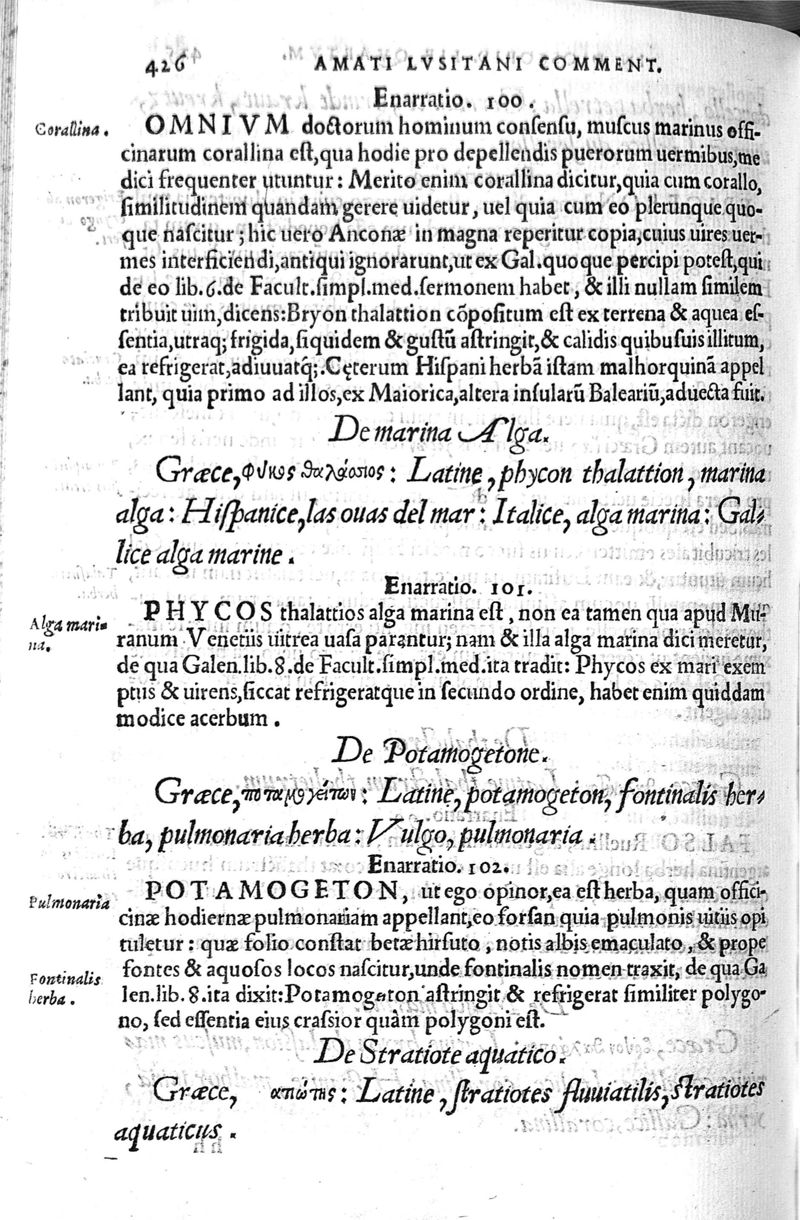 426 AMATI LVSITANI COMMENT.
Enarratio. 100.
Corallina.
OMNIVM doctorum hominum consensu, muscus marinus offi-
cinarum corallina est, qua hodie pro depellendis puerorum uermibus, me
dici frequenter utuntur: Merito enim corallina dicitur, quia cum corallo,
similitudinem quandam gerere uidetur, uel quia cum eo plerunque quo-
que nascitur; hic uero Anconæ in magna reperitur copia, cuius uires uer-
mes interficiendi, antiqui ignorarunt, ut ex Gal. quoque percipi potest, qui
de eo lib. 6. de Facult. simpl. med. sermonem habet, & illi nullam similem
tribuit uim, dicens: Bryon thalattion cõpositum est ex terrena & aquea es-
sentia, utraq; frigida, siquidem & gustũ astringit, & calidis quibusuis illitum,
ea refrigerat, adiuuatq́;. Cęterum Hispani herbã istam malhorquinã appel
lant, quia primo ad illos, ex Maiorica, altera insularũ Baleariũ, aduecta fuit.
De marina Alga.
Græce, φῦκος θαλάσσιος: Latine, phycon thalattion, marina
alga: Hispanice, las ouas del mar: Italice, alga marina: Gal-
lice alga marine.
Enarratio. 101.
Alga mari-
na.
PHYCOS thalattios alga marina est, non ea tamen qua apud Mu-
ranum Venetiis uitrea uasa parantur; nam & illa alga marina dici meretur,
de qua Galen. lib. 8. de Facult. simpl. med. ita tradit: Phycos ex mari exem
ptus & uirens, siccat refrigeratque in secundo ordine, habet enim quiddam
modice acerbum.
De Potamogetone.
Græce, ποταμογείτων: Latine, potamogeton, fontinalis her-
ba, pulmonaria herba: Vulgo, pulmonaria.
Enarratio. 102.
Pulmonaria
POTAMOGETON, ut ego opinor, ea est herba, quam offici-
cinæ hodiernæ pulmonariam appellant, eo forsan quia pulmonis uitiis opi
tuletur: quæ folio constat betæ hirsuto, notis albis emaculato, & prope
Fontinalis
herba.
fontes & aquosos locos nascitur, unde fontinalis nomen traxit, de qua Ga
len. lib. 8. ita dixit: Potamogeton astringit & refrigerat similiter polygo-
no, sed essentia eius crassior quàm polygoni est.
De Stratiote aquatico.
Græce, Latine, stratiotes fluuiatilis, stratiotes
aquaticus.